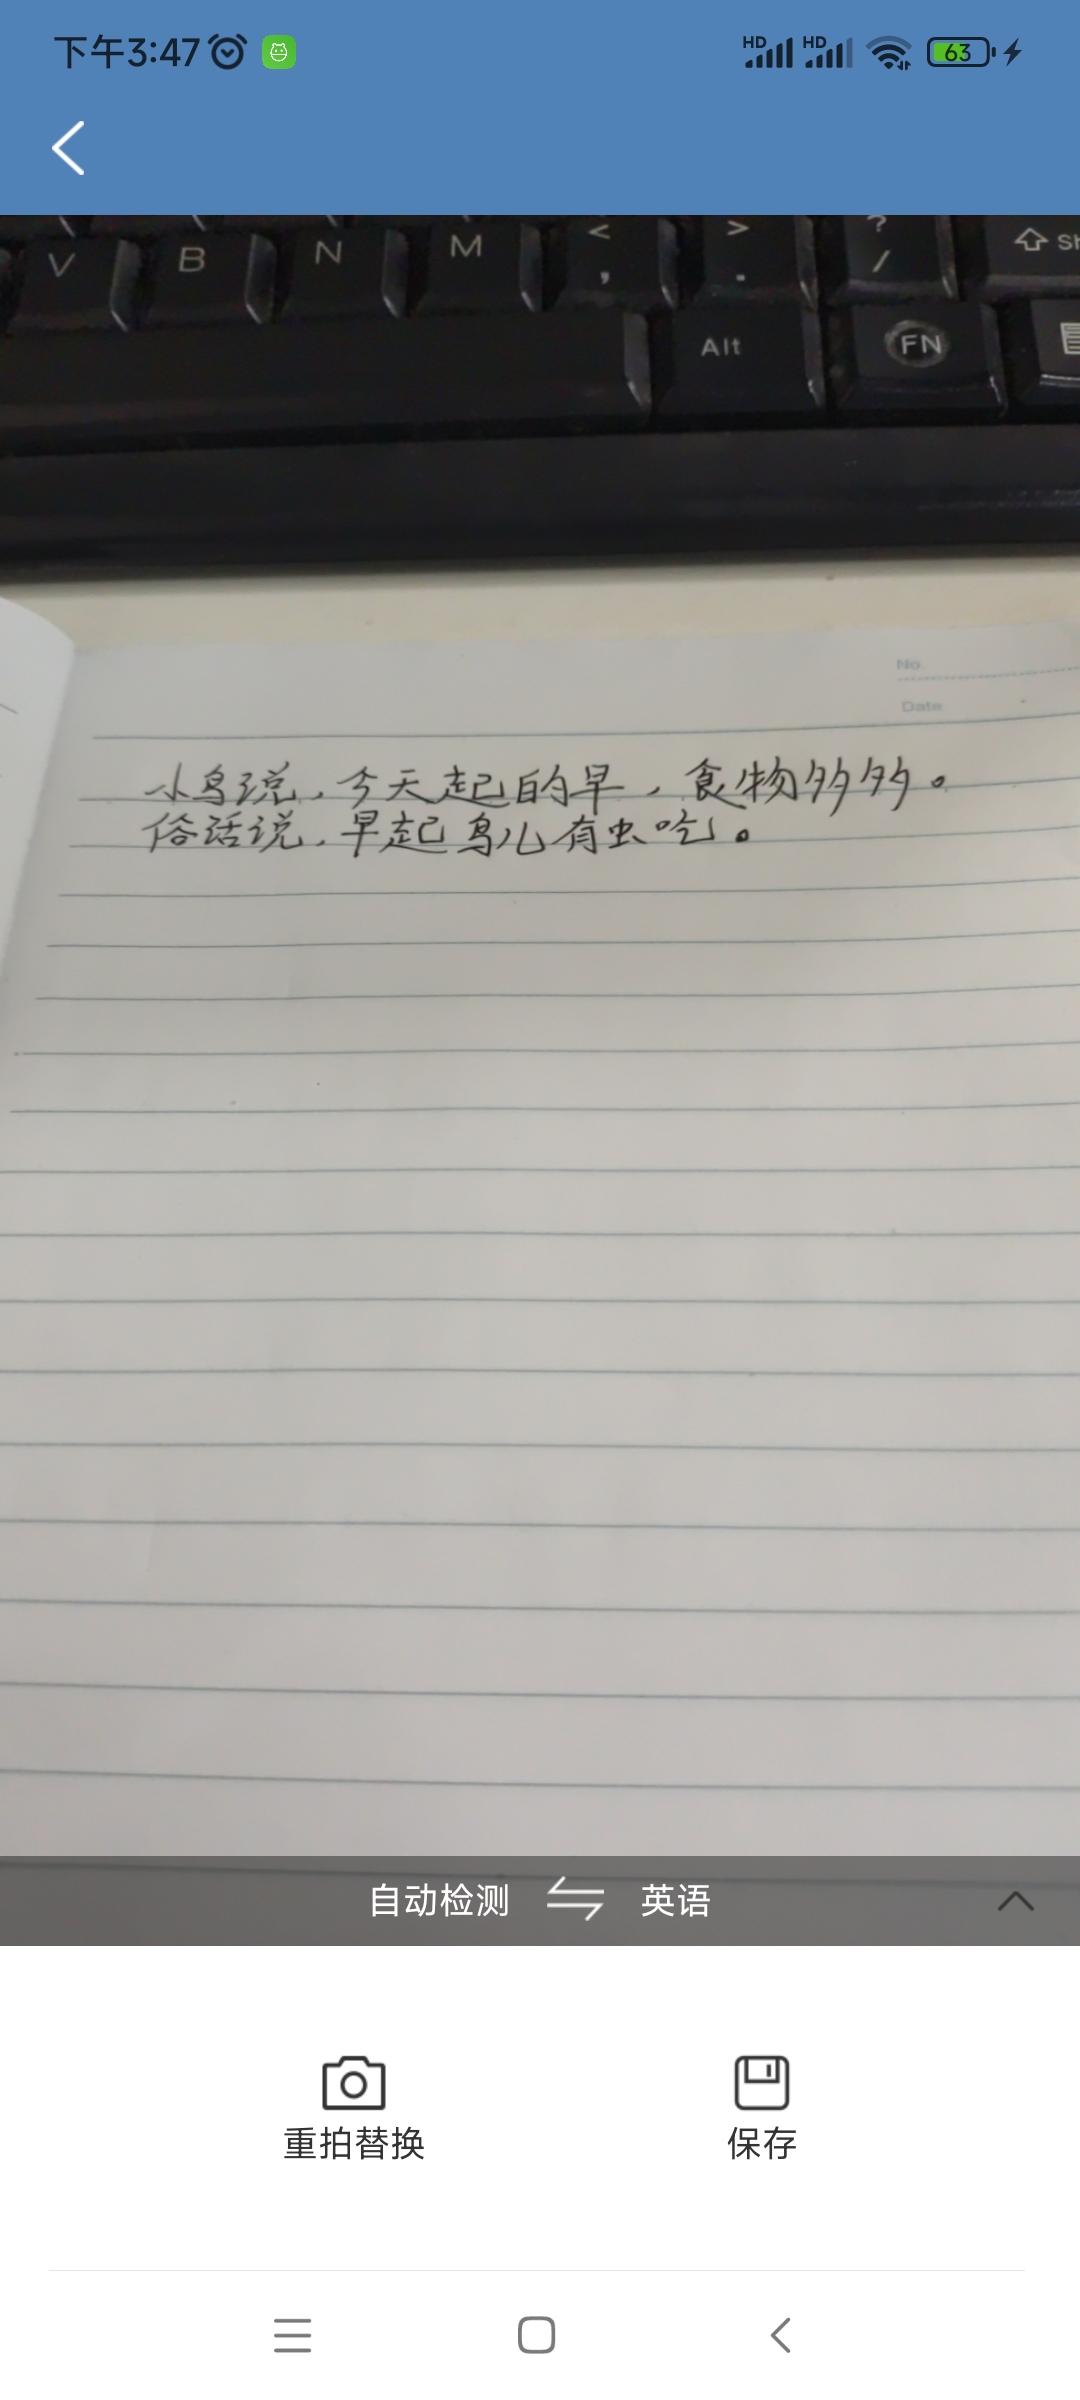 下午3:47
HD HD 63
V B N M < , > . ? /
Alt FN
No.
Date
小鸟说,今天起的早,食物多多。
俗话说,早起鸟儿有虫吃。
自动检测 英语
重拍替换 保存